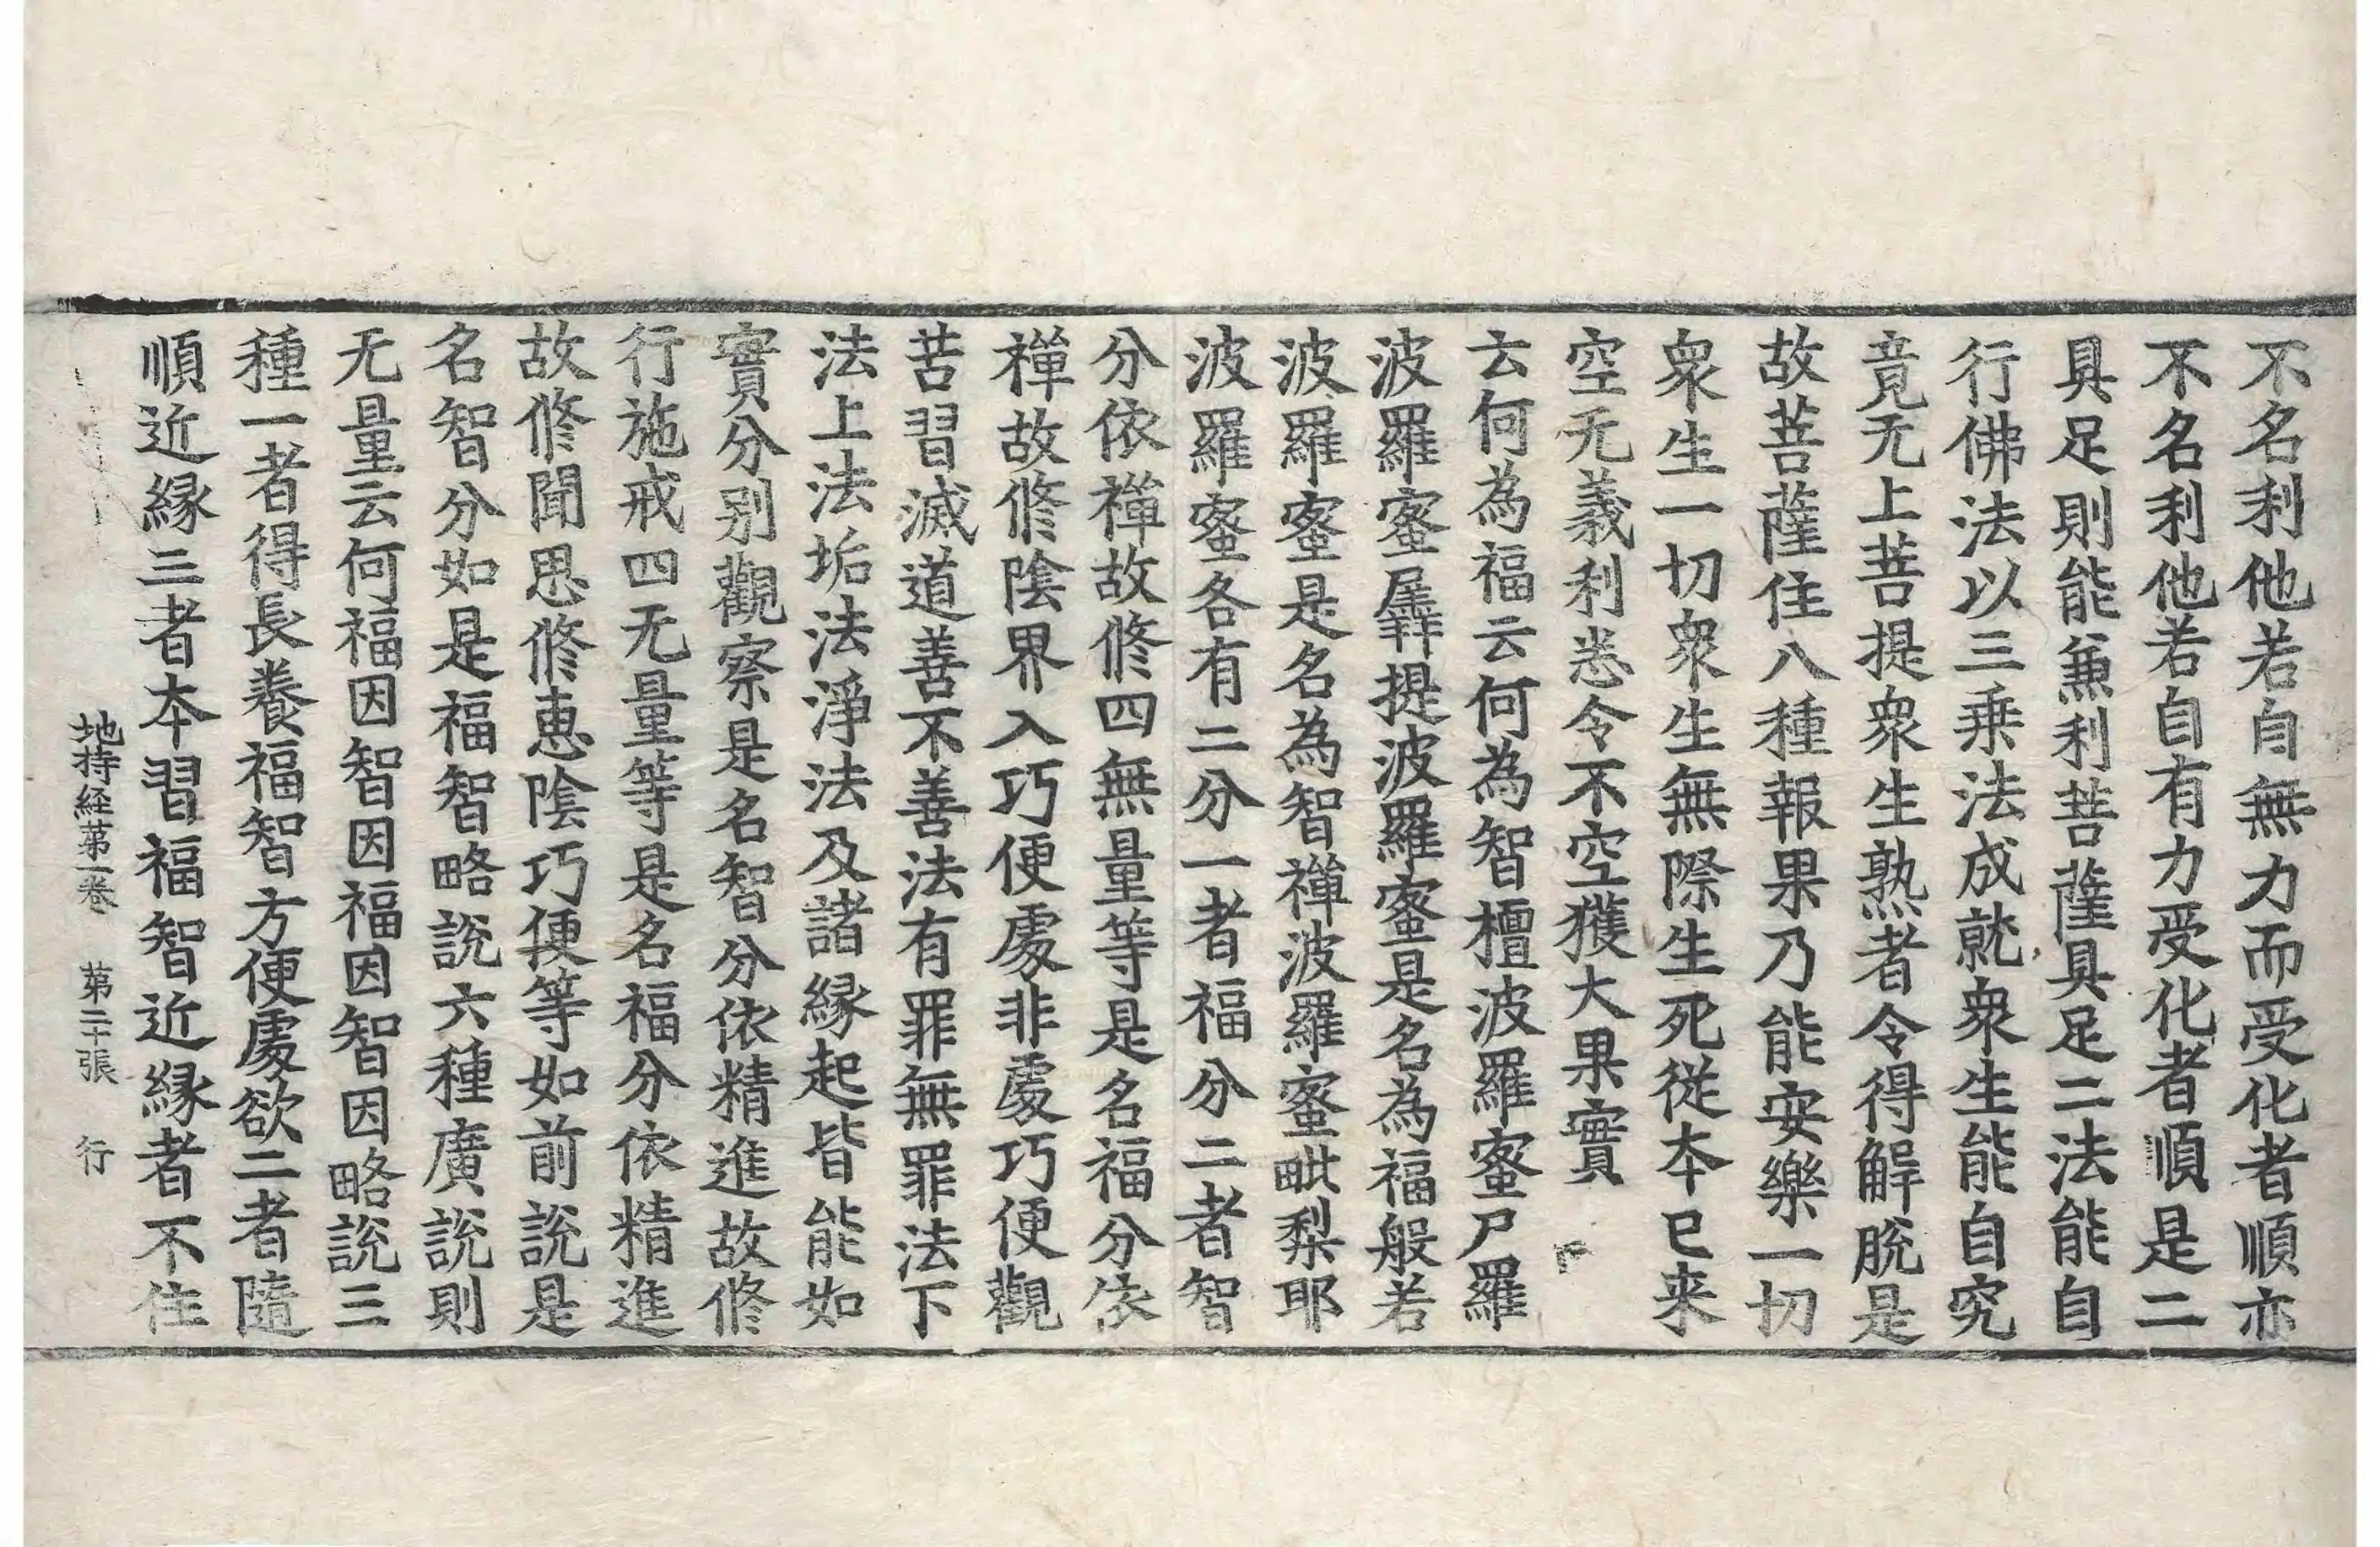 不名利他若自無力而受化者順亦
不名利他若自有力受化者順是二
具足則能兼利菩薩具足二法能自
行佛法以三乗法成就衆生能自究
竟无上菩提衆生熟者令得解脱是
故菩薩住八種報果乃能安樂一切
衆生一切衆生無際生死從本已来
空无義利悉令不空獲大果實
云何為福云何為智檀波羅蜜尸羅
波羅蜜羼提波羅蜜是名為福般若
波羅蜜是名為智禪波羅蜜毗梨耶
波羅蜜各有二分一者福分二者智
分依禪故修四無量等是名福分依
禪故修陰界入巧便處非處巧便觀
苦習滅道善不善法有罪無罪法下
法上法垢法淨法及諸縁起皆能如
實分别觀察是名智分依精進故修
行施戒四无量等是名福分依精進
故修聞思修恵陰巧便等如前說是
名智分如是福智略說六種廣說則
无量云何福因智因福因智因略說三
種一者得長養福智方便處欲二者隨
順近縁三者本習福智近縁者不住
地持経第一卷 第二十張 行